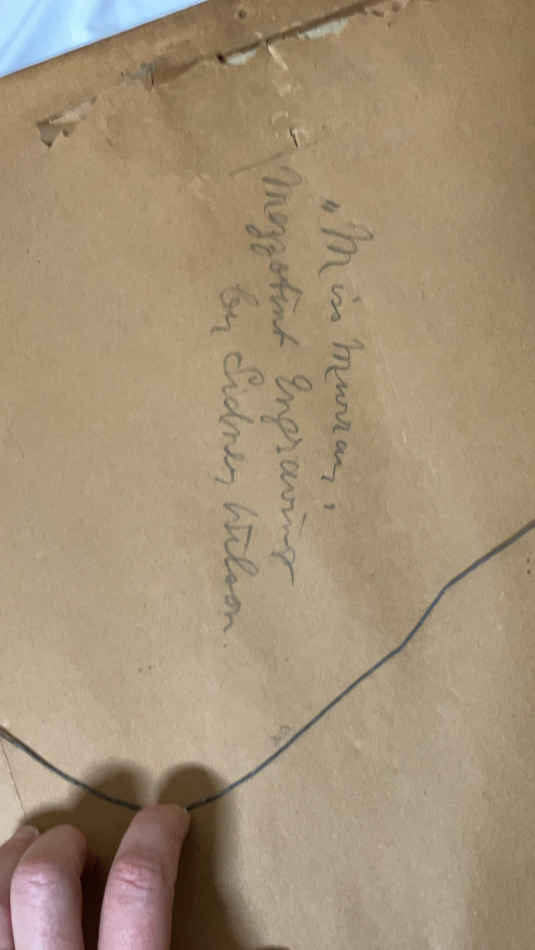 "Miss Murray,
Mezzotint Engraving
by Sidney Wilson.